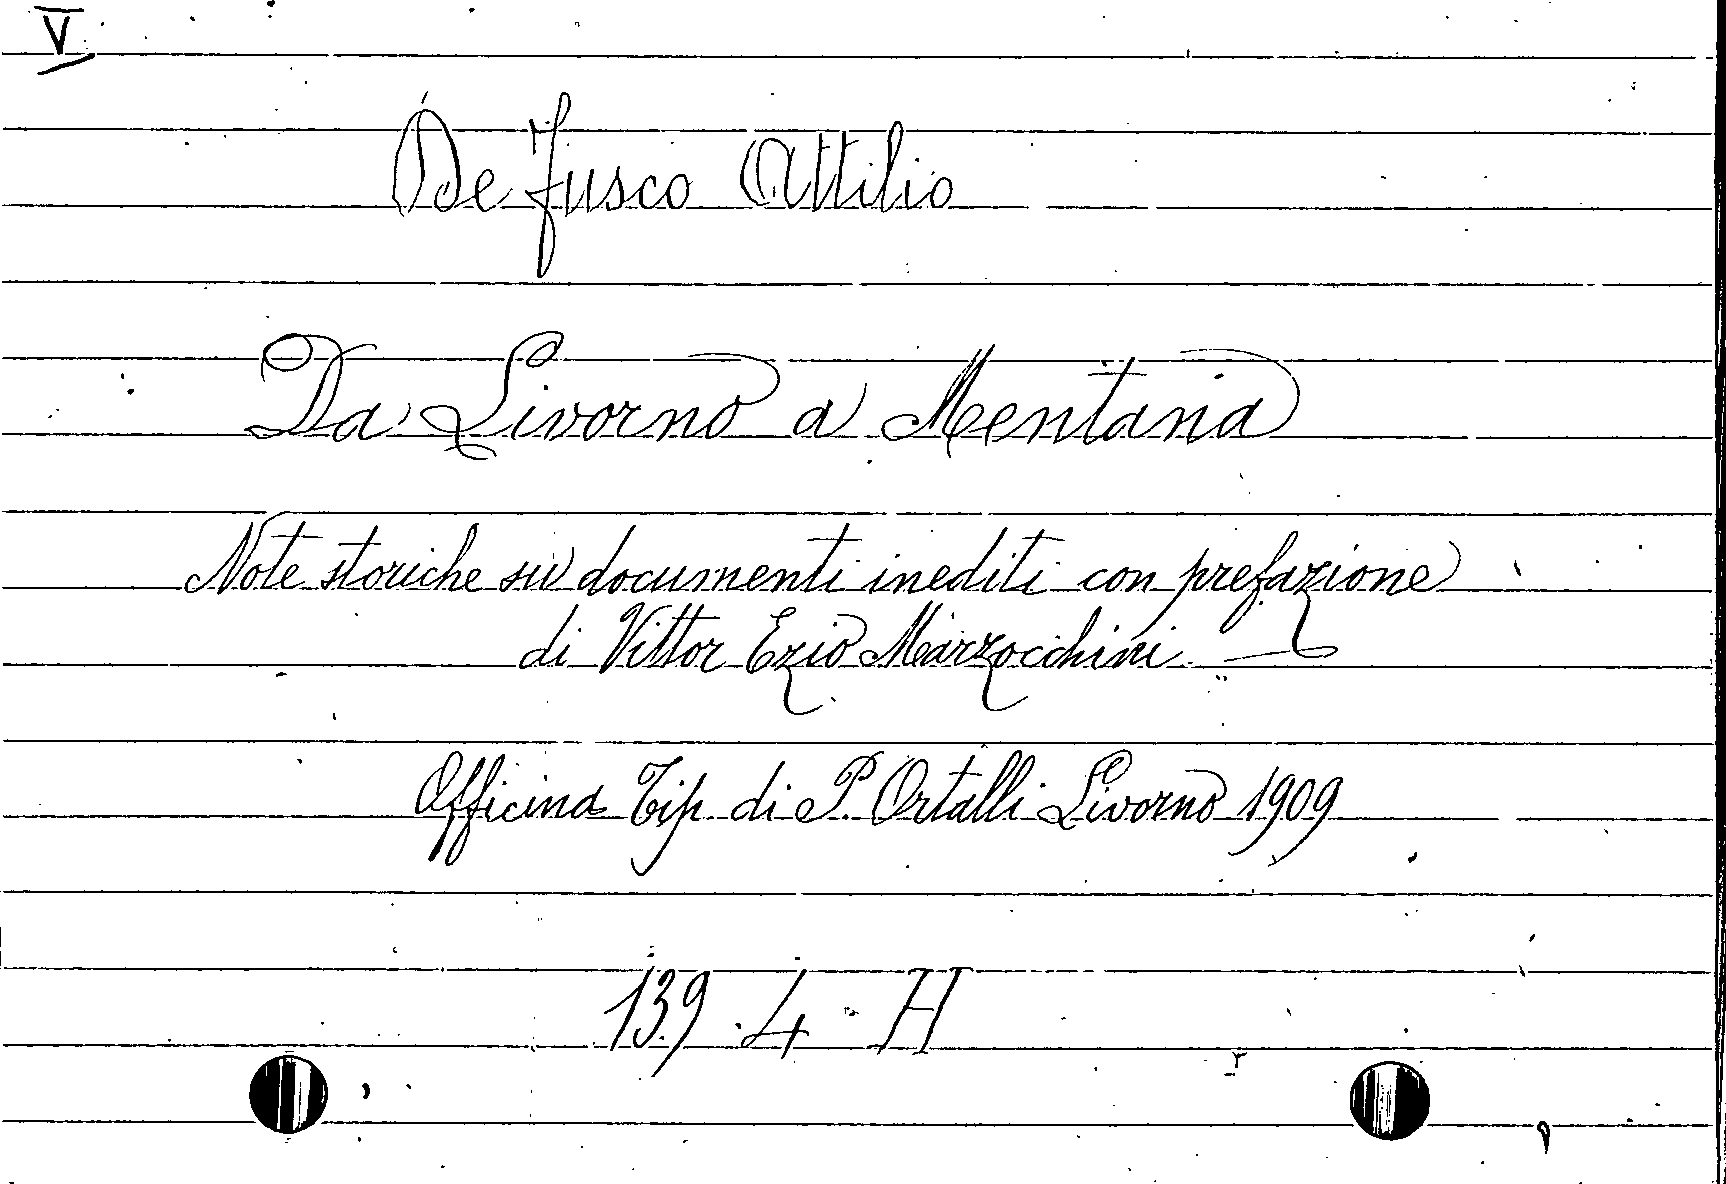 V
De Fusco Attilio
Da Livorno a Mentana
Note storiche su documenti inediti con prefazione
di Vittor Ezio Marzocchini
Officina Tip. di P. Ortalli Livorno 1909
139 . 4 - H